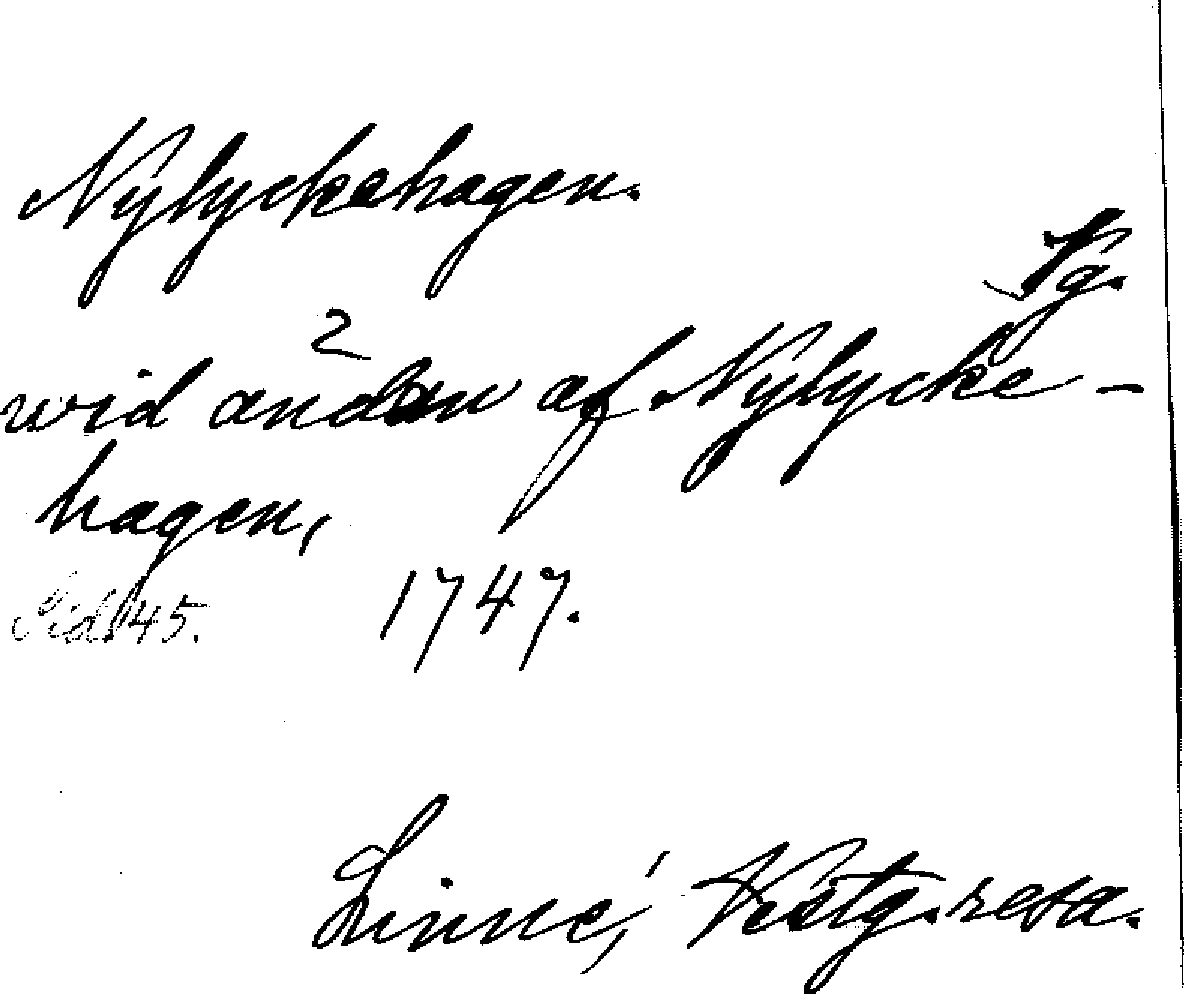 Nylyckehagen.
Vg.
2
wid andan af Nylycke-
hagen,
Sid. 45. 1747.
Linné, Västg. resa.